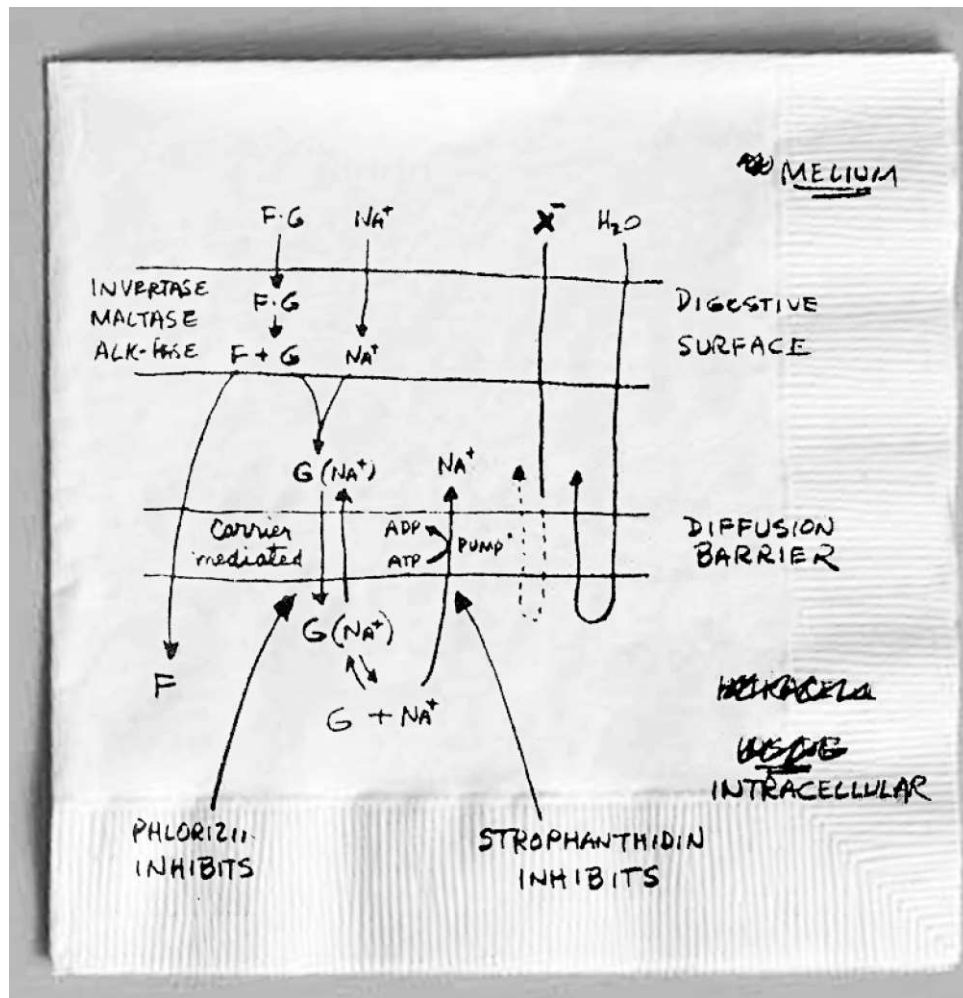 MELIUM
F·G NA⁺ X⁻ H₂O
INVERTASE
MALTASE
F·G
F + G NA⁺
DIGESTIVE
SURFACE
G (NA⁺) NA⁺
Carrier
mediated
ADP
ATP
PUMP
DIFFUSION
BARRIER
G (NA⁺)
F
G + NA⁺
INTRACELLULAR
INHIBITS
STROPHANTHIDIN
INHIBITS